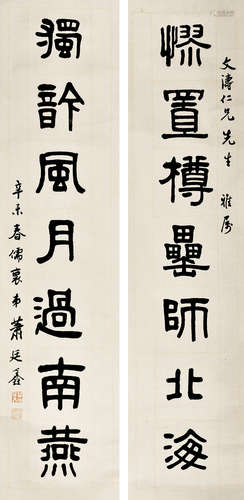 文濤仁兄先生 雅屬
憀置樽罍師北海
獨訡風月過南燕
辛未春儒襄弟蕭廷